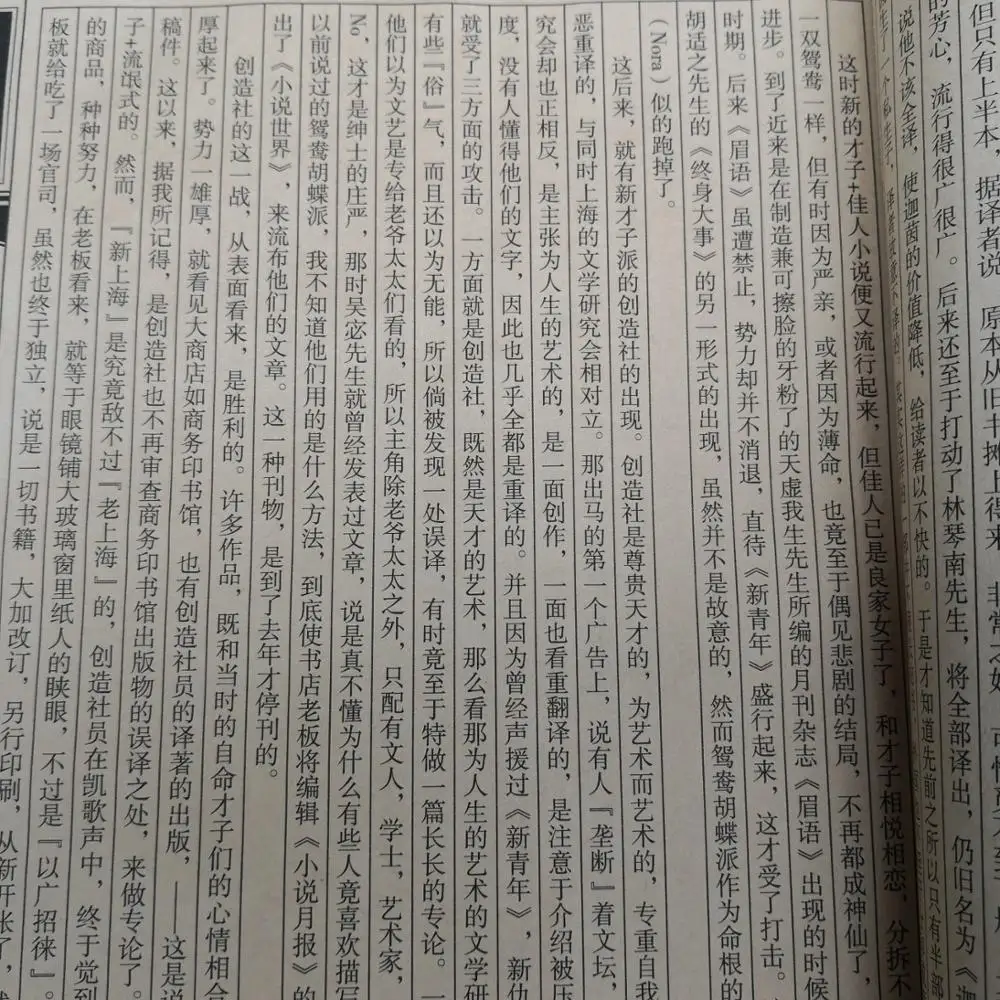 但只有上半本，据译者说，原本从旧书摊上得来，非常之好，
的芳心，流行得很广很广。后来还至于打动了林琴南先生，将全部译出，仍旧名为《迦
说他不该全译，使迦茵的价值降低，给读者以不快的。于是才知道先前之所以只有半部
生了一个私生子，译者故意不译的。其实这样的一部
这时新的才子+佳人小说便又流行起来，但佳人已是良家女子了，和才子相悦相恋，分拆不
一双鸳鸯一样，但有时因为严亲，或者因为薄命，也竟至于偶见悲剧的结局，不再都成神仙了，
进步。到了近来是在制造兼可擦脸的牙粉了的天虚我生先生所编的月刊杂志《眉语》出现的时候
时期。后来《眉语》虽遭禁止，势力却并不消退，直待《新青年》盛行起来，这才受了打击。
胡适之先生的《终身大事》的另一形式的出现，虽然并不是故意的，然而鸳鸯胡蝶派作为命根的
(Nora)似的跑掉了。
这后来，就有新才子派的创造社的出现。创造社是尊贵天才的，为艺术而艺术的，专重自我
恶重译的，与同时上海的文学研究会相对立。那出马的第一个广告上，说有人『垄断』着文坛，
究会却也正相反，是主张为人生的艺术的，是一面创作，一面也看重翻译的，是注意于介绍被压
度，没有人懂得他们的文字，因此也几乎全都是重译的。并且因为曾经声援过《新青年》，新仇
就受了三方面的攻击。一方面就是创造社，既然是天才的艺术，那么看那为人生的艺术的文学研
有些『俗』气，而且还以为无能，所以倘被发现一处误译，有时竟至于特做一篇长长的专论。一
他们以为文艺是专给老爷太太们看的，所以主角除老爷太太之外，只配有文人，学士，艺术家，
No，这才是绅士的庄严，那时吴宓先生就曾经发表过文章，说是真不懂为什么有些人竟喜欢描写
以前说过的鸳鸯胡蝶派，我不知道他们用的是什么方法，到底使书店老板将编辑《小说月报》的
出了《小说世界》，来流布他们的文章。这一种刊物，是到了去年才停刊的。
创造社的这一战，从表面看来，是胜利的。许多作品，既和当时的自命才子们的心情相合
厚起来了。势力一雄厚，就看见大商店如商务印书馆，也有创造社员的译著的出版，——这是说
稿件。这以来，据我所记得，是创造社也不再审查商务印书馆出版物的误译之处，来做专论了。
子+流氓式的。然而，『新上海』是究竟敌不过『老上海』的，创造社员在凯歌声中，终于觉到
的商品，种种努力，在老板看来，就等于眼镜铺大玻璃窗里纸人的䀹眼，不过是『以广招徕』。
板就给吃了一场官司，虽然也终于独立，说是一切书籍，大加改订，另行印刷，从新开张了，